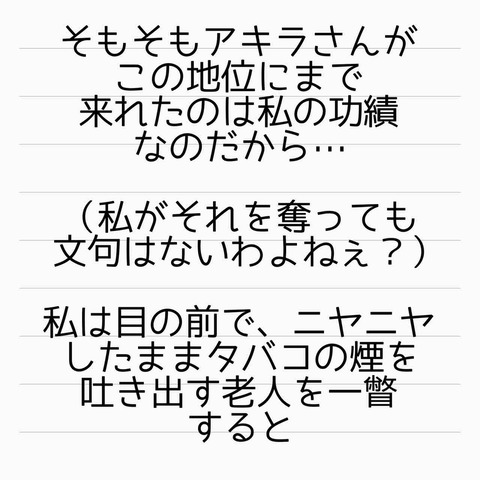 そもそもアキラさんが
この地位にまで
来れたのは私の功績
なのだから…
（私がそれを奪っても
文句はないわよねぇ？）
私は目の前で、ニヤニヤ
したままタバコの煙を
吐き出す老人を一瞥
すると